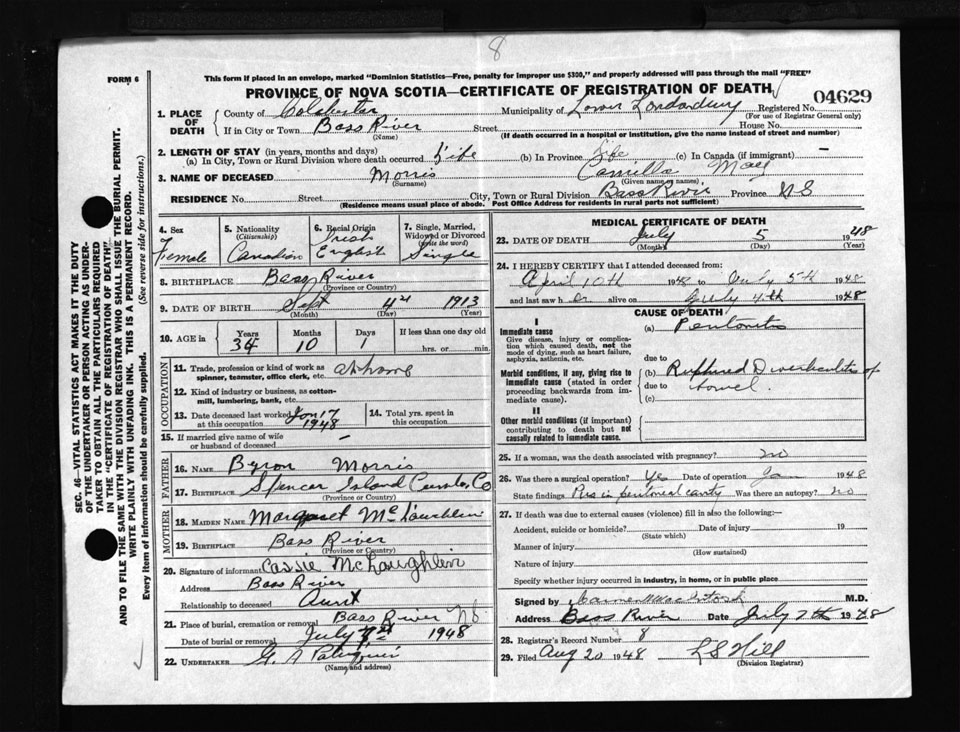 8
FORM 6
This form if placed in an envelope, marked "Dominion Statistics—Free, penalty for improper use $300," and properly addressed will pass through the mail "FREE"
PROVINCE OF NOVA SCOTIA—CERTIFICATE OF REGISTRATION OF DEATH
04629
1. PLACE OF DEATH County of Colchester Municipality of Lower Londonderry Registered No.
(For use of Registrar General only)
If in City or Town Bass River Street House No.
(Name) (If death occurred in a hospital or institution, give the name instead of street and number)
2. LENGTH OF STAY (in years, months and days)
(a) In City, Town or Rural Division where death occurred Life (b) In Province Life (c) In Canada (if immigrant) —
3. NAME OF DECEASED Morris Camilla May
(Surname) (Given name or names)
RESIDENCE No. Street City, Town or Rural Division Bass River Province N S
(Residence means usual place of abode. Post Office Address for residents in rural parts not sufficient)
4. Sex 5. Nationality 6. Racial Origin 7. Single, Married,
(Citizenship) Widowed or Divorced
(write the word)
Female Canadian Irish English Single
8. BIRTHPLACE Bass River
(Province or Country)
9. DATE OF BIRTH Sept 4th 1913
(Month) (Day) (Year)
10. AGE in Years Months Days If less than one day old
34 10 1 hrs. or min.
OCCUPATION
11. Trade, profession or kind of work as
spinner, teamster, office clerk, etc. at home
12. Kind of industry or business, as cotton-
mill, lumbering, bank, etc.
13. Date deceased last worked at this occupation Jan 17 1948 14. Total yrs. spent in this occupation
15. If married give name of wife
or husband of deceased —
FATHER
16. NAME Byron Morris
17. BIRTHPLACE Spencer Island Co
(Province or Country)
MOTHER
18. MAIDEN NAME Margaret McLaughlin
19. BIRTHPLACE Bass River
(Province or Country)
20. Signature of informant Cassie McLaughlin
Address Bass River
Relationship to deceased Aunt
21. Place of burial, cremation or removal Bass River N S
Date of burial or removal July 1948
22. UNDERTAKER G. A
(Name and address)
MEDICAL CERTIFICATE OF DEATH
23. DATE OF DEATH July 5 1948
(Month) (Day) (Year)
24. I HEREBY CERTIFY that I attended deceased from:
April 10th 1948 to July 5th 1948
and last saw h er alive on July 4th 1948
CAUSE OF DEATH
I
Immediate cause (a) Peritonitis
Give disease, injury or complica-
tion which caused death, not the
mode of dying, such as heart failure,
asphyxia, asthenia, etc. due to
Morbid conditions, if any, giving rise to (b) Ruptured Diverticulitis of
immediate cause (stated in order due to bowel.
proceeding backwards from im-
mediate cause). (c)
II
Other morbid conditions (if important)
contributing to death but not
causally related to immediate cause.
25. If a woman, was the death associated with pregnancy? no
26. Was there a surgical operation? Yes Date of operation Jan 1948
State findings Pus in peritoneal cavity Was there an autopsy? no
27. If death was due to external causes (violence) fill in also the following:—
Accident, suicide or homicide? Date of injury 19
(State which)
Manner of injury
(How sustained)
Nature of injury
Specify whether injury occurred in industry, in home, or in public place
Signed by MacIntosh M.D.
Address Bass River Date July 7th 1948
28. Registrar's Record Number 8
29. Filed Aug 20 1948 L S Hill
(Division Registrar)
SEC. 46—VITAL STATISTICS ACT MAKES IT THE DUTY
OF THE UNDERTAKER OR PERSON ACTING AS UNDER-
TAKER TO OBTAIN ALL THE PARTICULARS REQUIRED
IN THE "CERTIFICATE OF REGISTRATION OF DEATH"
AND TO FILE THE SAME WITH THE DIVISION REGISTRAR WHO SHALL ISSUE THE BURIAL PERMIT.
WRITE PLAINLY WITH UNFADING INK. THIS IS A PERMANENT RECORD.
Every item of information should be carefully supplied. (See reverse side for instructions.)